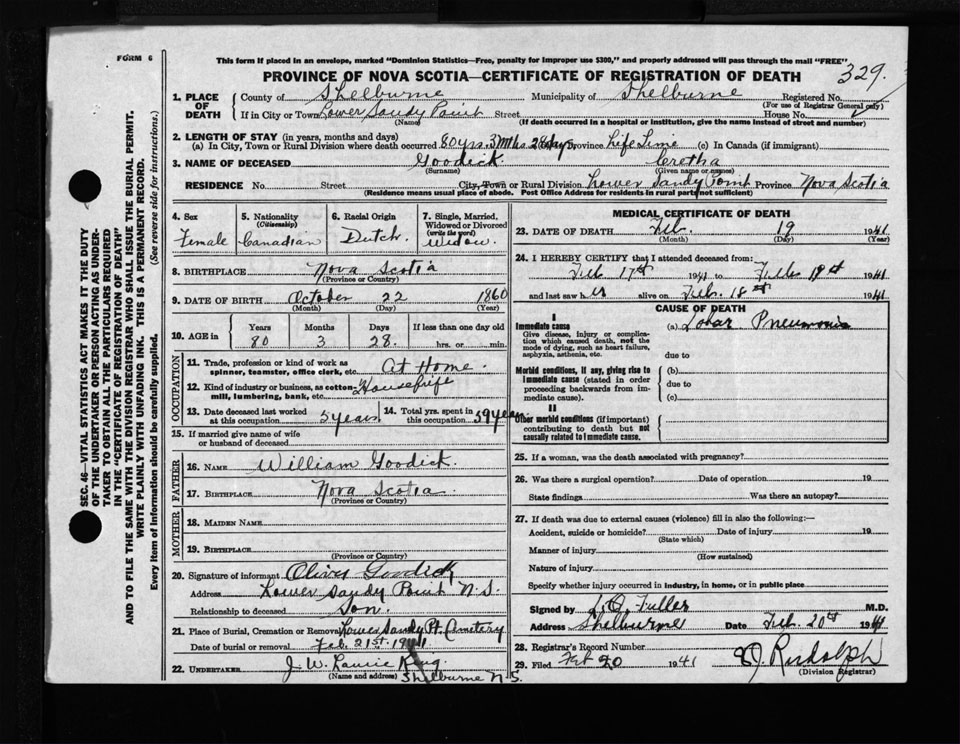 FORM 6
This form if placed in an envelope, marked "Dominion Statistics—Free, penalty for improper use $300," and properly addressed will pass through the mail "FREE"
PROVINCE OF NOVA SCOTIA—CERTIFICATE OF REGISTRATION OF DEATH 329
1. PLACE OF DEATH County of Shelburne Municipality of Shelburne Registered No.
(For use of Registrar General only)
If in City or Town Lower Sandy Point Street House No.
(Name) (If death occurred in a hospital or institution, give the name instead of street and number)
2. LENGTH OF STAY (in years, months and days)
(a) In City, Town or Rural Division where death occurred 80 yrs. 3 Mths 28 days Province Life Time (c) In Canada (if immigrant)
3. NAME OF DECEASED Goodick Cretha
(Surname) (Given name or names)
RESIDENCE No. Street City, Town or Rural Division Lower Sandy Point Province Nova Scotia
(Residence means usual place of abode. Post Office Address for residents in rural parts not sufficient)
4. Sex Female
5. Nationality (Citizenship) Canadian
6. Racial Origin Dutch
7. Single, Married, Widowed or Divorced (write the word) Widow
8. BIRTHPLACE Nova Scotia
(Province or Country)
9. DATE OF BIRTH October 22 1860
(Month) (Day) (Year)
10. AGE in Years Months Days If less than one day old
80 3 28. hrs. or min.
OCCUPATION
11. Trade, profession or kind of work as spinner, teamster, office clerk, etc. At Home.
12. Kind of industry or business, as cotton-mill, lumbering, bank, etc. Housewife
13. Date deceased last worked at this occupation 5 years
14. Total yrs. spent in this occupation 59 years
15. If married give name of wife or husband of deceased
FATHER
16. NAME William Goodick.
17. BIRTHPLACE Nova Scotia
(Province or Country)
MOTHER
18. MAIDEN NAME
19. BIRTHPLACE
(Province or Country)
20. Signature of informant Oliver Goodick
Address Lower Sandy Point N.S.
Relationship to deceased Son.
21. Place of Burial, Cremation or Removal Lower Sandy Pt. Cemetery
Date of burial or removal Feb. 21st 1941
22. UNDERTAKER J. W. Laurie King.
(Name and address) Shelburne N.S.
MEDICAL CERTIFICATE OF DEATH
23. DATE OF DEATH Feb. 19 1941
(Month) (Day) (Year)
24. I HEREBY CERTIFY that I attended deceased from:
Feb 17th 1941 to Feb 18st 1941
and last saw her alive on Feb. 18st 1941
CAUSE OF DEATH
I
Immediate cause
Give disease, injury or complication which caused death, not the mode of dying, such as heart failure, asphyxia, asthenia, etc.
(a) Lobar Pneumonia
due to
Morbid conditions, if any, giving rise to Immediate cause (stated in order proceeding backwards from immediate cause).
(b)
due to
(c)
II
Other morbid conditions (if important) contributing to death but not causally related to Immediate cause.
25. If a woman, was the death associated with pregnancy?
26. Was there a surgical operation? Date of operation 19
State findings Was there an autopsy?
27. If death was due to external causes (violence) fill in also the following:—
Accident, suicide or homicide? Date of injury 19
(State which)
Manner of injury
(How sustained)
Nature of injury
Specify whether injury occurred in industry, in home, or in public place
Signed by L. O. Fuller M.D.
Address Shelburne Date Feb. 20st 1941
28. Registrar's Record Number
29. Filed Feb 20 1941 Rudolph
(Division Registrar)
SEC. 46—VITAL STATISTICS ACT MAKES IT THE DUTY
OF THE UNDERTAKER OR PERSON ACTING AS UNDERTAKER
TO OBTAIN ALL THE PARTICULARS REQUIRED
IN THE "CERTIFICATE OF REGISTRATION OF DEATH"
AND TO FILE THE SAME WITH THE DIVISION REGISTRAR WHO SHALL ISSUE THE BURIAL PERMIT.
WRITE PLAINLY WITH UNFADING INK. THIS IS A PERMANENT RECORD.
Every item of information should be carefully supplied. (See reverse side for instructions.)